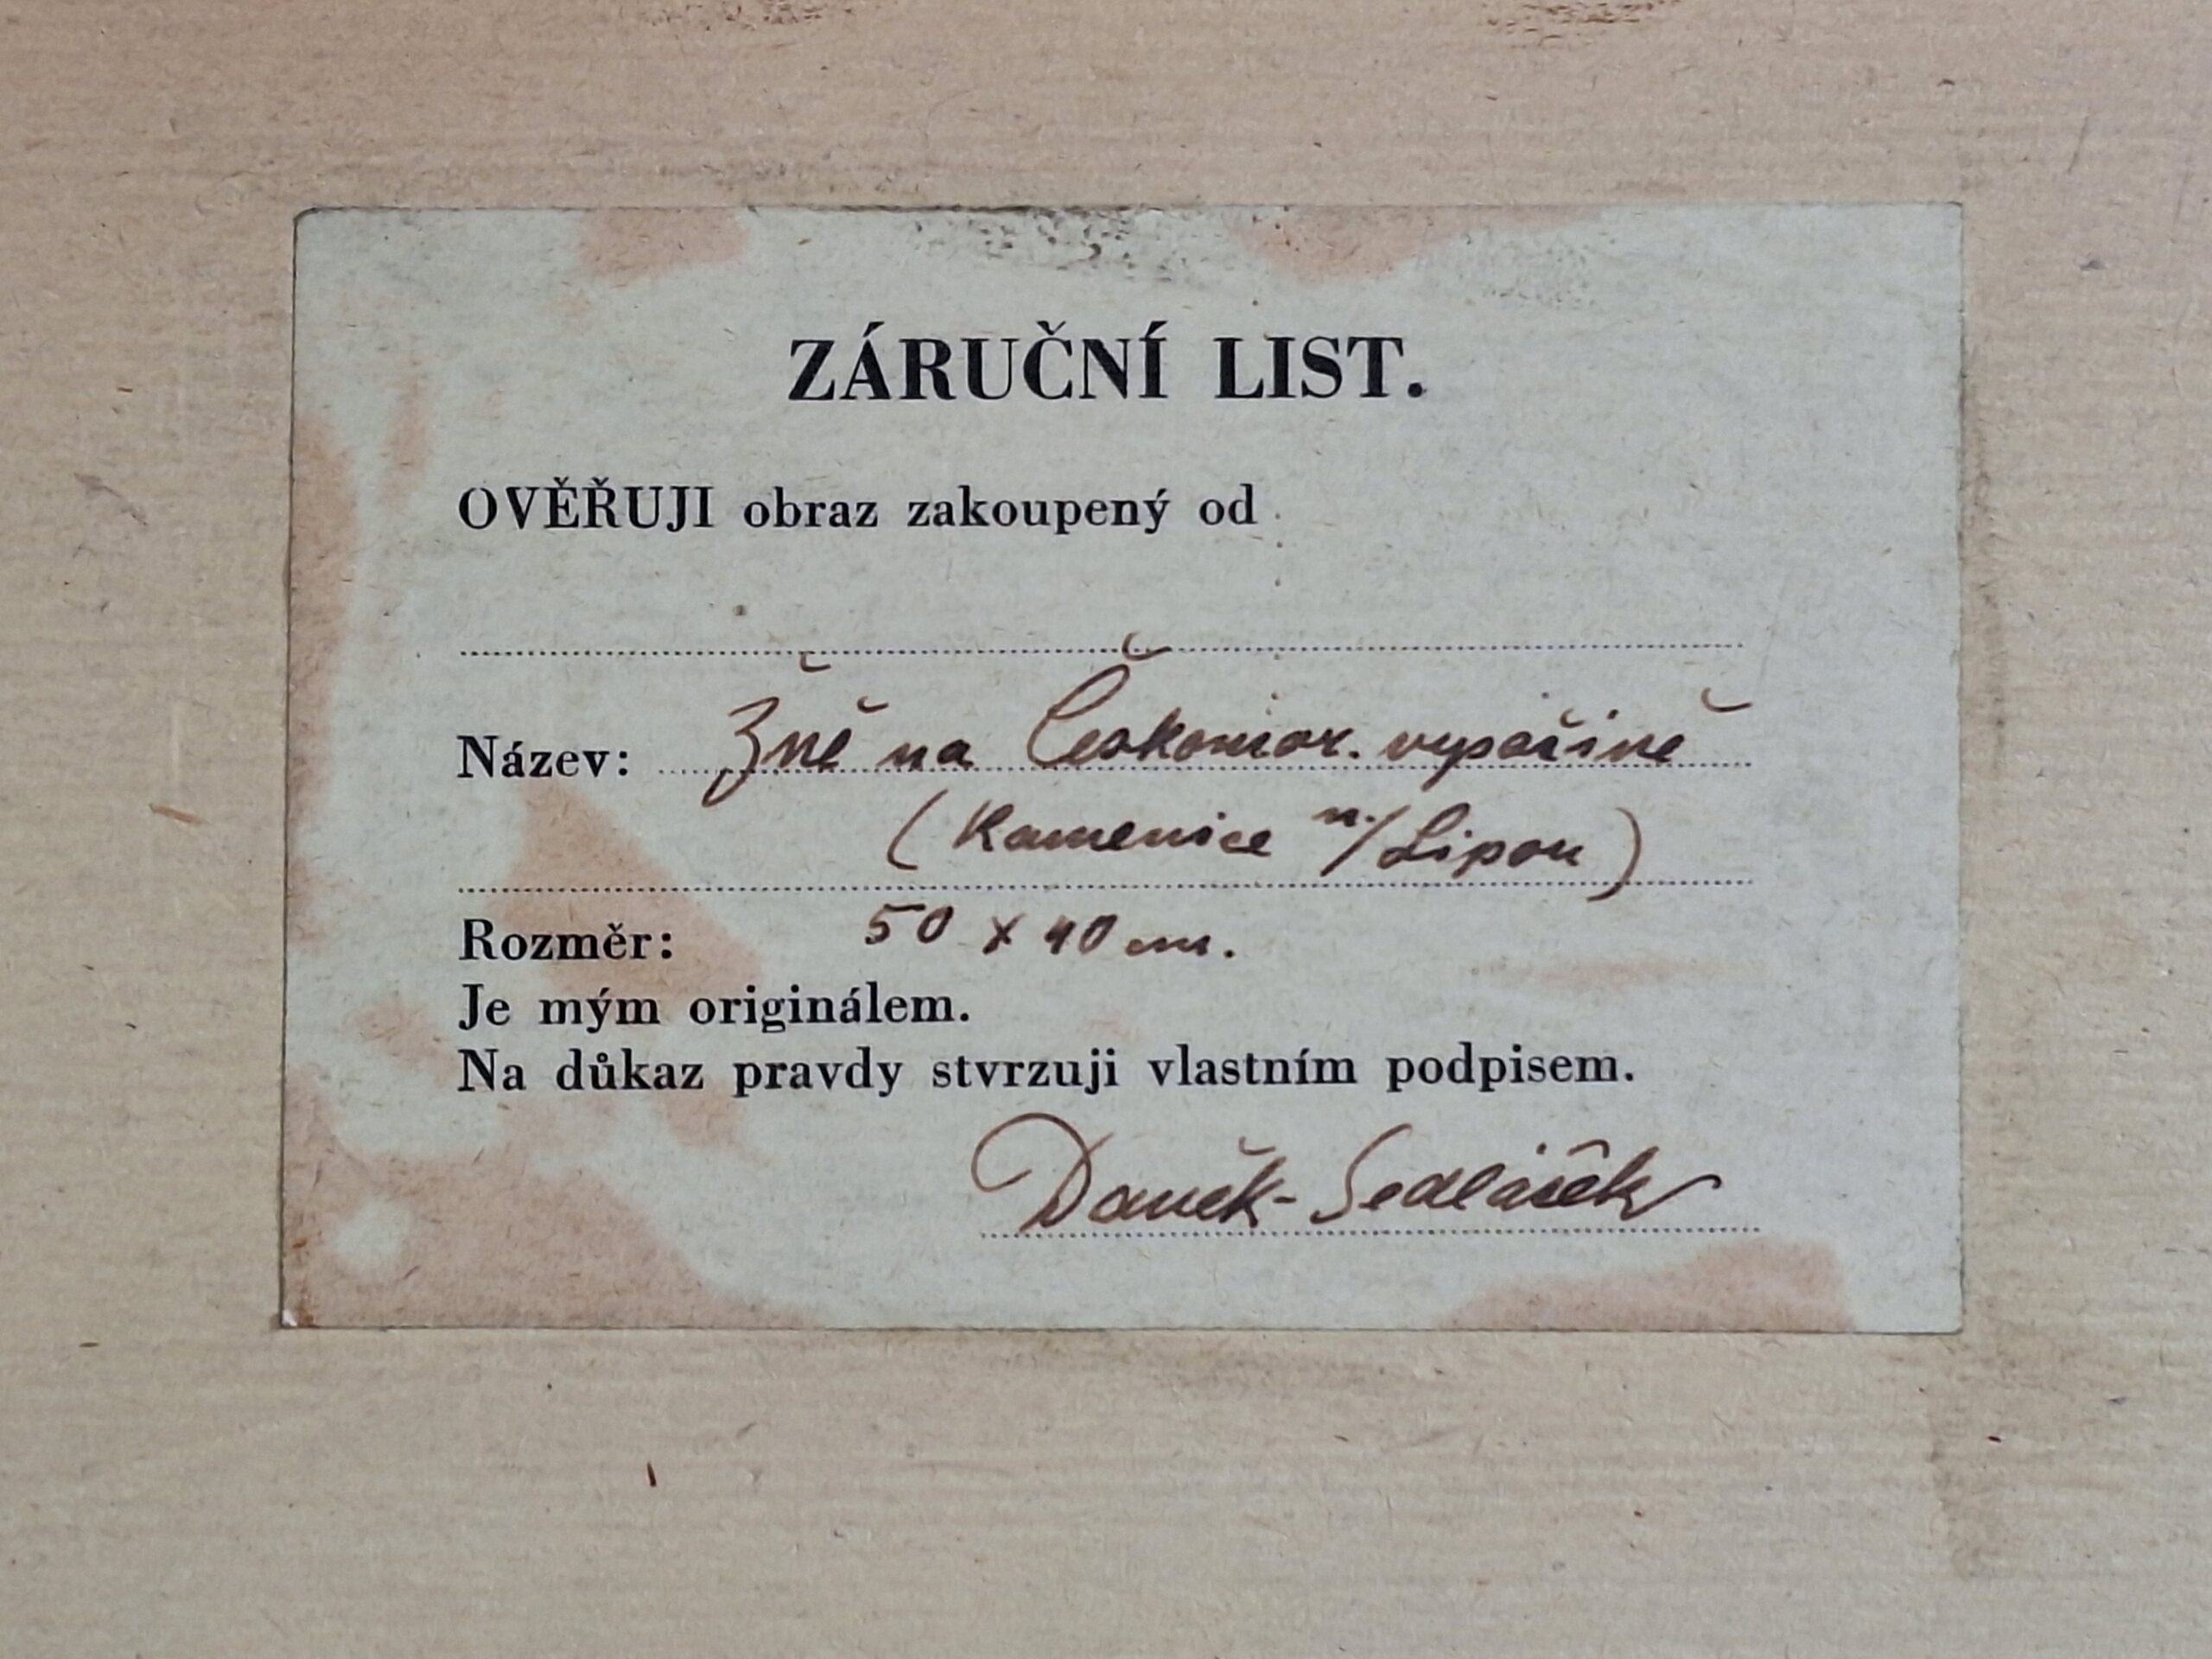 ZÁRUČNÍ LIST.
OVĚŘUJI obraz zakoupený od
Název: Žně na Českomor. vysočině
(Kamenice n./Lipou)
Rozměr: 50 x 40 cm.
Je mým originálem.
Na důkaz pravdy stvrzuji vlastním podpisem.
Daněk-Sedláček